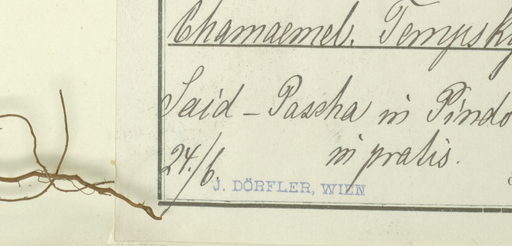 Chamaemel. Tempsky
Said - Pascha in Pindo
in pratis.
24./6.
J. DÖRFLER, WIEN